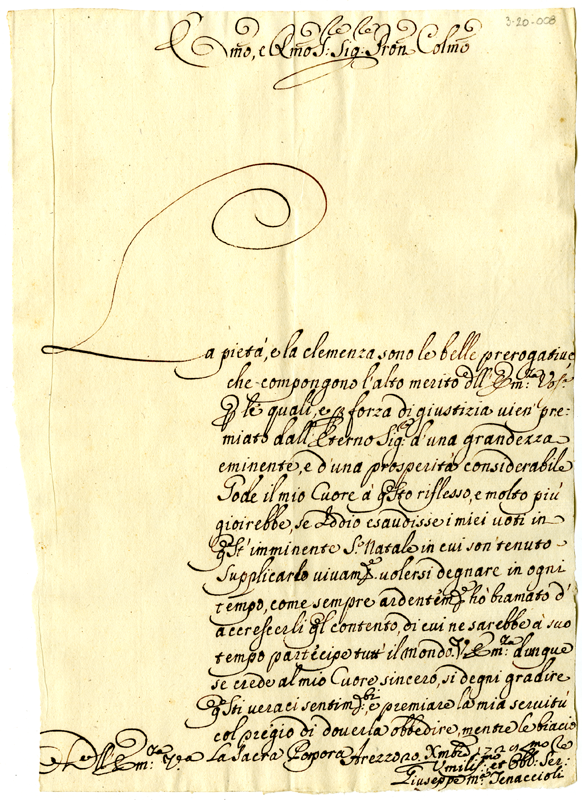 3-20-008
Emo, e Rmo Sig. Sig. Pron Colmo
La pietà, e la clemenza sono le belle prerogative
che compongono l'alto merito dll' Em.za Vos.a
p le quali, e p forza di giustizia vien pre=
miato dall' Eterno Sig.e d'una grandezza
eminente, e d'una prosperità considerabile
Gode il mio Cuore à qsto riflesso, e molto più
gioirebbe, se Iddio esaudisse i miei voti in
qst' imminente S. Natale in cui son tenuto
supplicarlo vivamte volersi degnare in ogni
tempo, come sempre ardentemte hò bramato d'
accrescerli ql contento, di cui ne sarebbe à suo
tempo partecipe tutt' il mondo. V. Em.za dunque
se crede al mio Cuore sincero, si degni gradire
qsti veraci sentimti, e premiare la mia servitù
col pregio di doverla obbedire, mentre le bacio
Dell' Em.za V.a La Sacra Porpora Arezzo 20 Xmbre 1729
Umiliss.mo et Obb. Ser:
Giuseppe M.a Tenaccioli